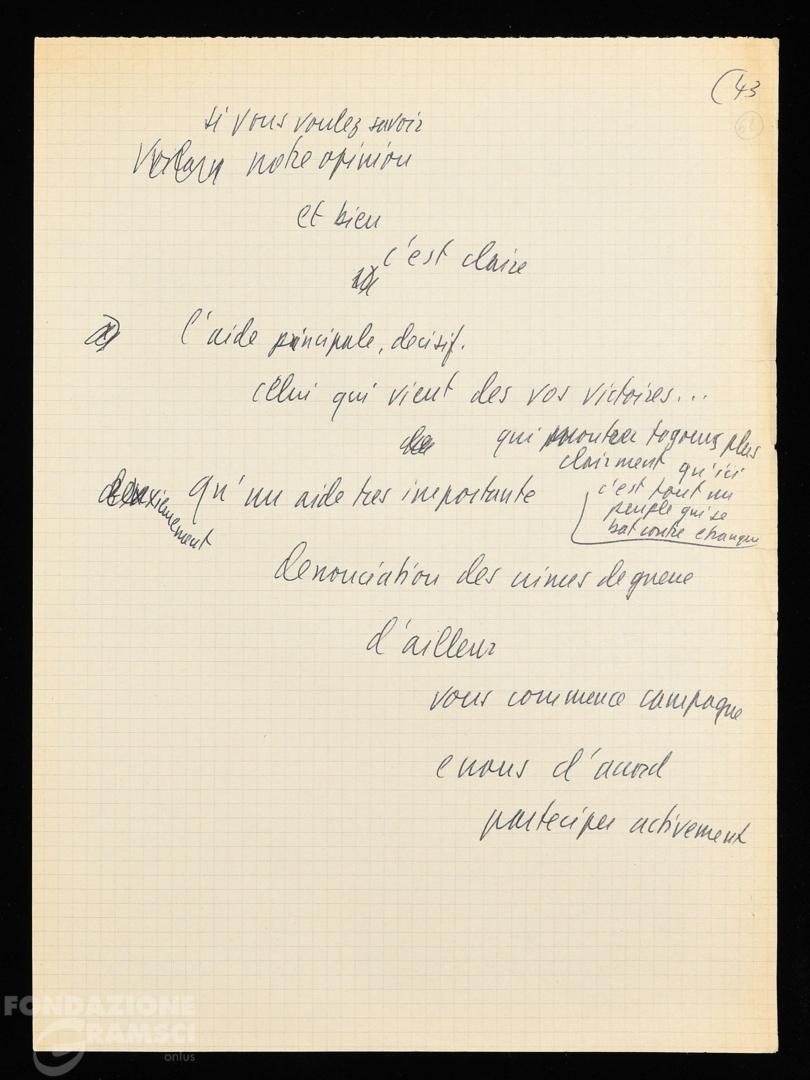 (43
62
si vous voulez savoir
notre opinion
et bien
c'est claire
a)
l'aide principale, decisif.
celui qui vient des vos victoires...
qui montre togours plus
clairment qu'ici
c'est tout un
peuple qui se
bat contre etranger
deuxiemement
qu'un aide tres importante
denonciation des crimes de guerre
d'ailleur
vous commence campagne
e nous d'acord
parteciper activement
FONDAZIONE
GRAMSCI
onlus